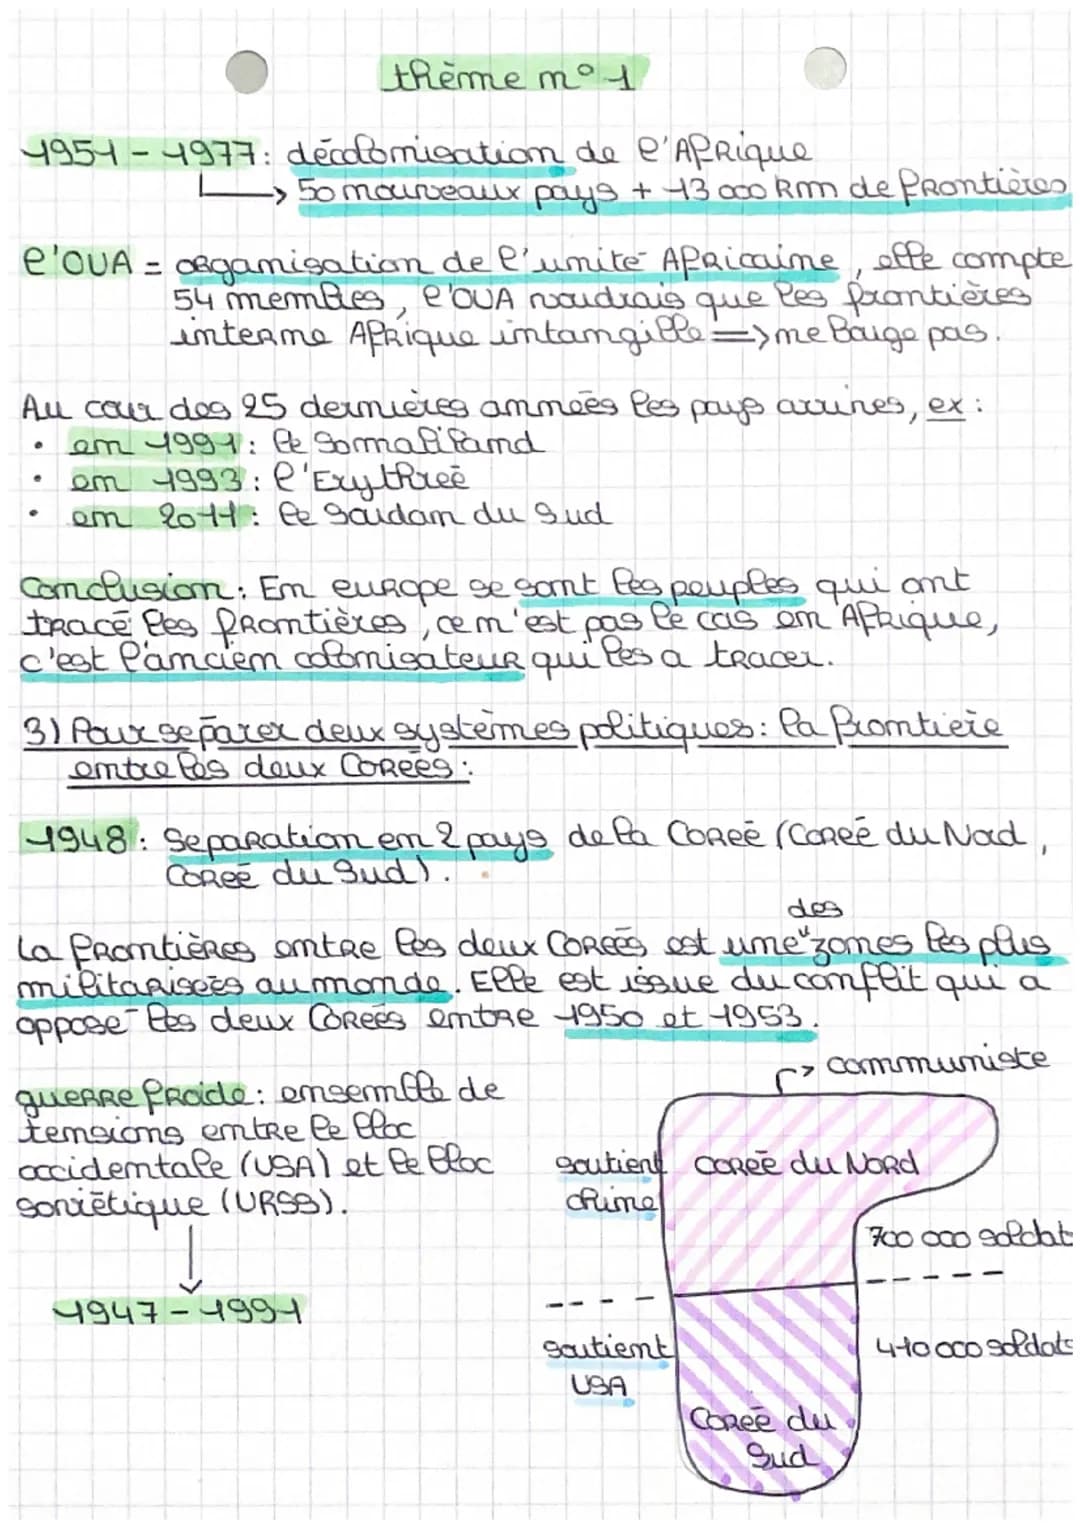 thème n° 1
1951 - 1977 : décolonisation de l'Afrique
↳ 50 nouveaux pays + 13 000 km de frontières
l'OUA = organisation de l'unité Africaine, elle compte
54 membres, l'OUA voudrais que les frontières
interne Afrique intangible => ne bouge pas.
Au cour des 25 dernières années les pays arrives, ex :
• en 1991 : le Somaliland
• en 1993 : l'Erythreé
• en 2011 : le soudan du Sud
Conclusion : En europe se sont les peuples qui ont
tracé les frontières, ce n'est pas le cas en Afrique,
c'est l'ancien colonisateur qui les a tracer.
3) Pour séparer deux systèmes politiques : la frontière
entre les deux Coreés :
1948 : Separation en 2 pays de la Coreé (Coreé du Nord,
Coreé du Sud).
des
La frontières entre les deux Coreés est une" zones les plus
militariseés au monde. Elle est issue du conflit qui a
opposé les deux Coreés entre 1950 et 1953.
guerre froide : ensemble de
tensions entre le bloc
occidentale (USA) et le bloc
soviétique (URSS).
1947 - 1991
communiste
soutient
chine
Coreé du Nord
700 000 soldat
soutient
USA
410 000 soldats
Coreé du
Sud